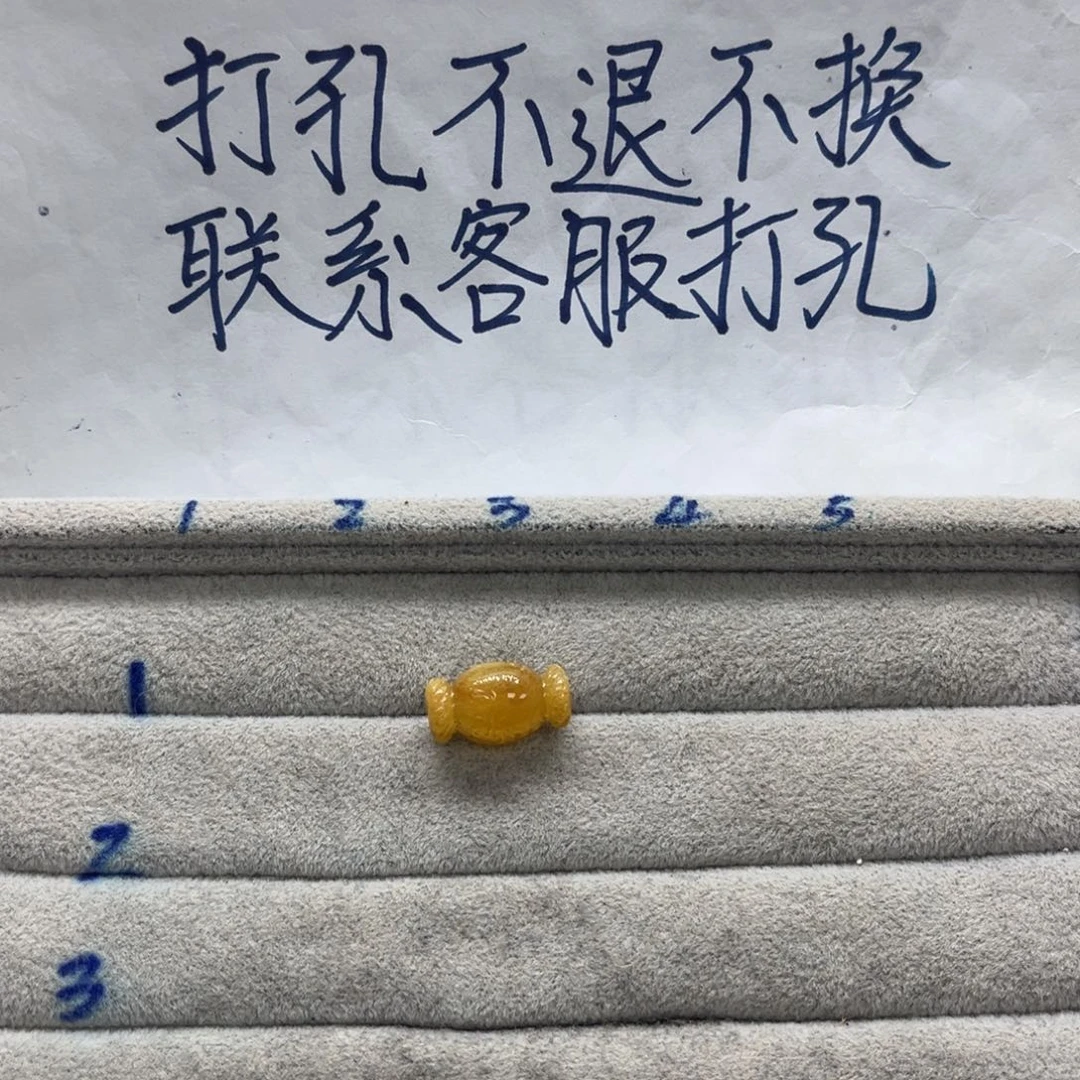 打孔不退不换
联系客服打孔
1 2 3 4 5
1
2
3